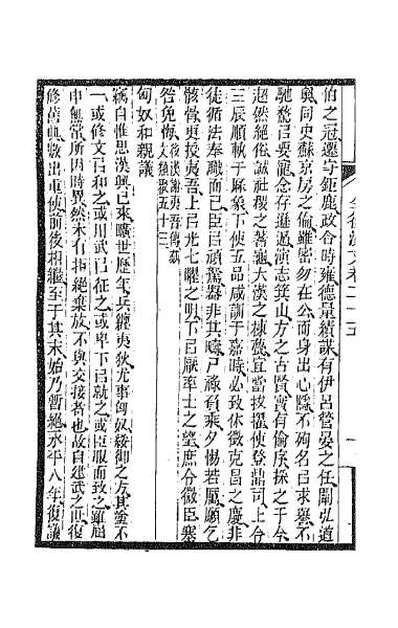 伯之冠遷守鉅鹿政合時雍德量績謀有伊呂管晏之任闡弘道
奧同史蘇京房之倫雖密勿在公而身出心隱不殉名㠯求譽不
馳騖㠯要寵念存遜遁演志箕山方之古賢實有倫序採之于今
超然絕俗誠社稷之蓍龜大漢之棟甍宜當拔擢使登鼎司上令
三辰順軌于厤象下使五品咸訓于嘉時必致休徵克昌之慶非
徒循法奉職而已臣㠯頑駑器非其疇尸祿負乘夕惕若厲願乞
骸骨更授夷吾上㠯光七曜之明下㠯厭率士之望庶令微臣塞
咎免悔後漢謝夷吾傳蓺文類聚五十三
匈奴和親議
竊自惟思漢興已來曠世歷年兵纏夷狄尤事匈奴綏御之方其塗不
一或修文㠯和之或用武㠯征之或卑下㠯就之或臣服而致之雖屈
申無常所因時異然未有拒絕棄放不與交接者也故自建武之世復
修舊典數出重使前後相繼至于其末始乃暫絕永平八年復議
全後漢文卷二十五
一